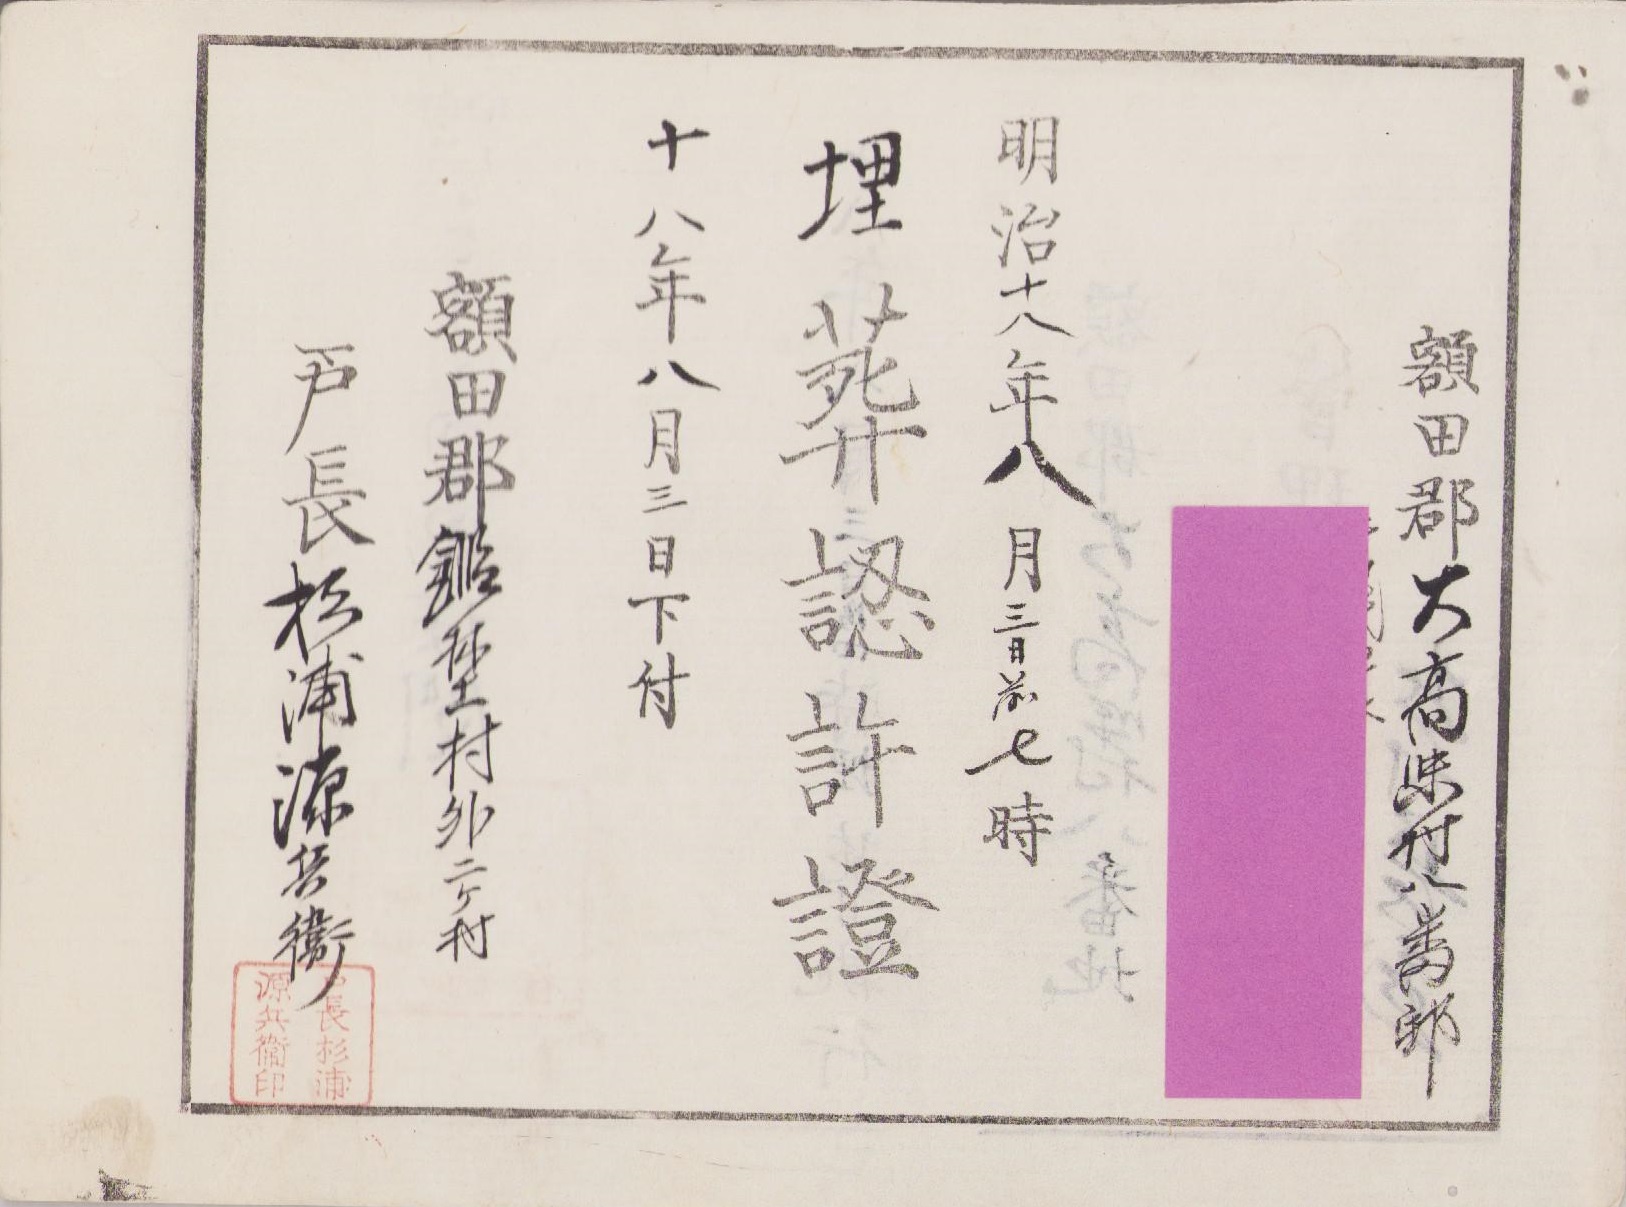 額田郡大高味村八番邸
明治十八年八月三日前七時
埋葬認許證
十八年八月三日下付
額田郡 村外二ケ村
戸長杉浦源兵衛
戸長杉浦
源兵衛印